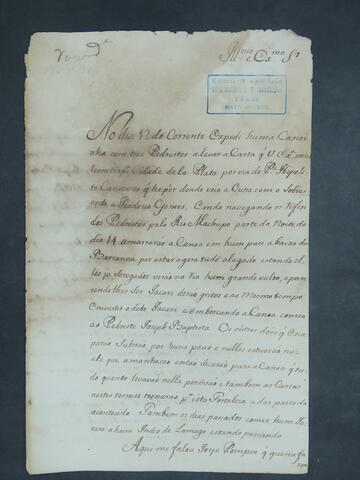 Ill.mo e Ex.mo S.r
No dia 12 do Corrente Expedi huma Canoi
nha com tres Pedrestes a levar a Carta q̃ V. Ex.a me
remeteo p.a Cidade de la Plata por via de P.e Hypoli
to Canizares q̃ he por donde veio a Outra com o Sobre
Gomes, Condo navegando os Refer
dos Pedrestes pelo Rio Machupo parte da Noite do
dia 14 amarrarão a Canoa em hum pau a baixo da
Barranca por estar agora tudo alagado estando el
les ja Socegados verão no Rio hum grande vulto, e paren
cendolhes Ser Jacaré derão gritos e ao mesmo tempo
o dito Jacare e emborcando a Canoa comeo
ao Pedreste Joseph Baptista. Os outros dois q̃ esca
parão Subirão por huns paos e nelles estiverão nuz
ate que amanheceo então descerão para a Canoa q̃ tu
do quanto levavão nella perderão e tambem as Cartas
nestes termos tornarão p.a esta Fortaleza a dar parte do
acontecido. Tambem os dias passados comeo hum Ja
care a hum Indio de Lamego estando pescando
Aqui me falou Jorje Pompeo q̃ queria fa